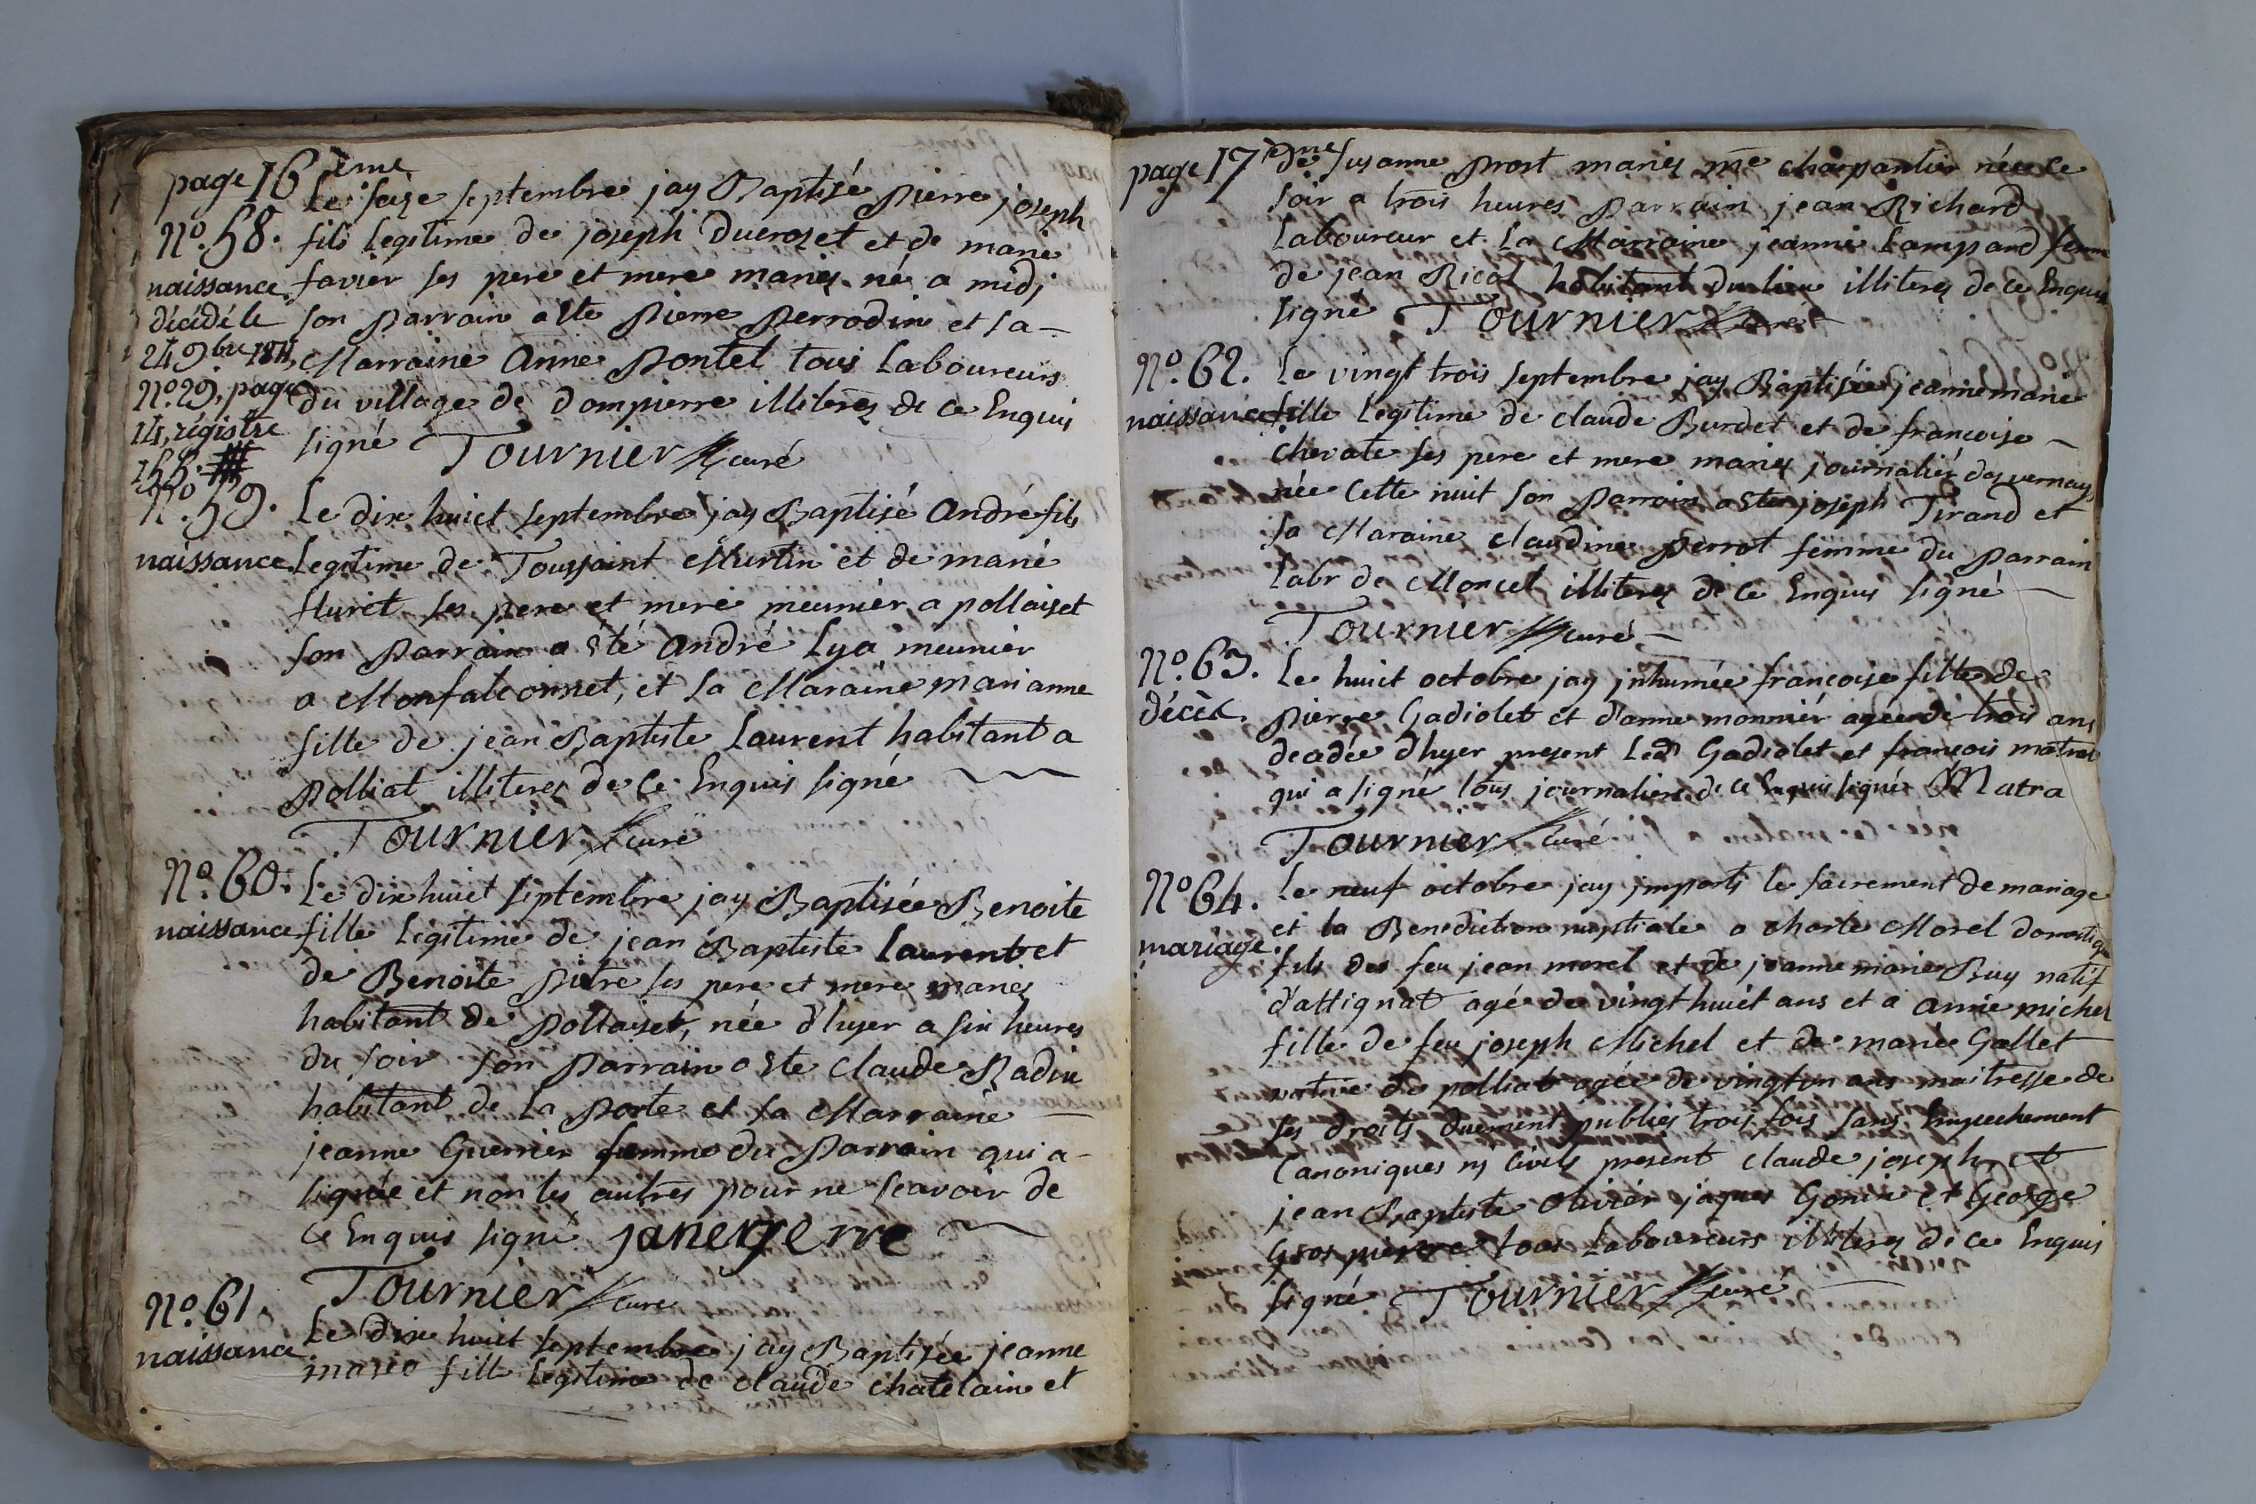 page 16ème
Le seize septembre jay Baptisé pierre joseph
No. 58. fils legitime de joseph Ducroset et de marie
naissance favier ses pere et mere mariés né a midj
décédé le son parrain a Ete pierre perrodin et sa
24 9bre 1811, Marraine Anne pontet tous Laboureurs
No 29, page du village de dompierre illiteres de ce Enquis
14, régistre signé Tournier curé
155. #
No. 59. Le dix huict septembre jay Baptisé André fils
naissance Legitime de Toussaint Murtin et de marie
fluret ses pere et mere meunier a pollaiset
son parrain a Eté André Lya meunier
a Monfalconnet, et sa Maraine marianne
fille de jean Baptiste Laurent habitant a
polliat illiteres de ce Enquis signé
Tournier curé
No. 60. Le dix huict septembre jay Baptisée Benoite
naissance fille legitime de jean Baptiste Laurent et
de Benoite pitre ses pere et mere mariés
habitant de pollaiset, née d'hyer a six heures
du soir son parrain a Ete claude Radix
habitant de La porte et sa Marraine
jeanne Guerrier femme du parrain qui a
signée et non les autres pour ne scavoir de
ce Enquis signé
Tournier curé
No. 61. Le dix huict septembre jay Baptisée jeanne
naissance marie fille legitime de claude chatelain et
page 17ème
de susanne prost mariés me charpantier née ce
soir a trois heures parrain jean Richard
Laboureur et La Marraine jeanne Lampard fem
de jean Ricol habitant du lieu illiteres de ce Enquis
signé Tournier curé
No. 62. Le vingt trois septembre jay Baptisée jeanne marie
naissance fille Legitime de claude Burdet et de francoise
chevate ses pere et mere mariés journalier des vernays
née cette nuit son parrain a Ete joseph Tirand et
sa Maraine claudine perrot femme du parrain
labr de Moncel illiteres de ce Enquis signé
Tournier curé
No. 63. Le huict octobre jay jnhumée francoise fille de
décès. pierre Gadiolet et d'anne monnier agée de trois ans
decedée d'hyer present Led Gadiolet et francois matras
qui a signé tous journaliers de ce Enquis signés Matra
Tournier curé
No 64. Le neuf octobre jay jmparti le sacrement de mariage
mariage. et la Benediction nuptiale a charle Morel domestique
fils des feu jean morel et de jeanne marie Buy natif
d'attignat agé de vingt huict ans et a anne michel
fille de feu joseph Michel et de marie Gallet
native de polliat agée de vingt un ans maitresse de
ses droits duement publiés trois fois sans Empechement
Canoniques nj civils present claude joseph et
jean Baptiste olivier jaques Gonin et George
Gros pierre tous Laboureurs illiteres de ce Enquis
signé Tournier curé